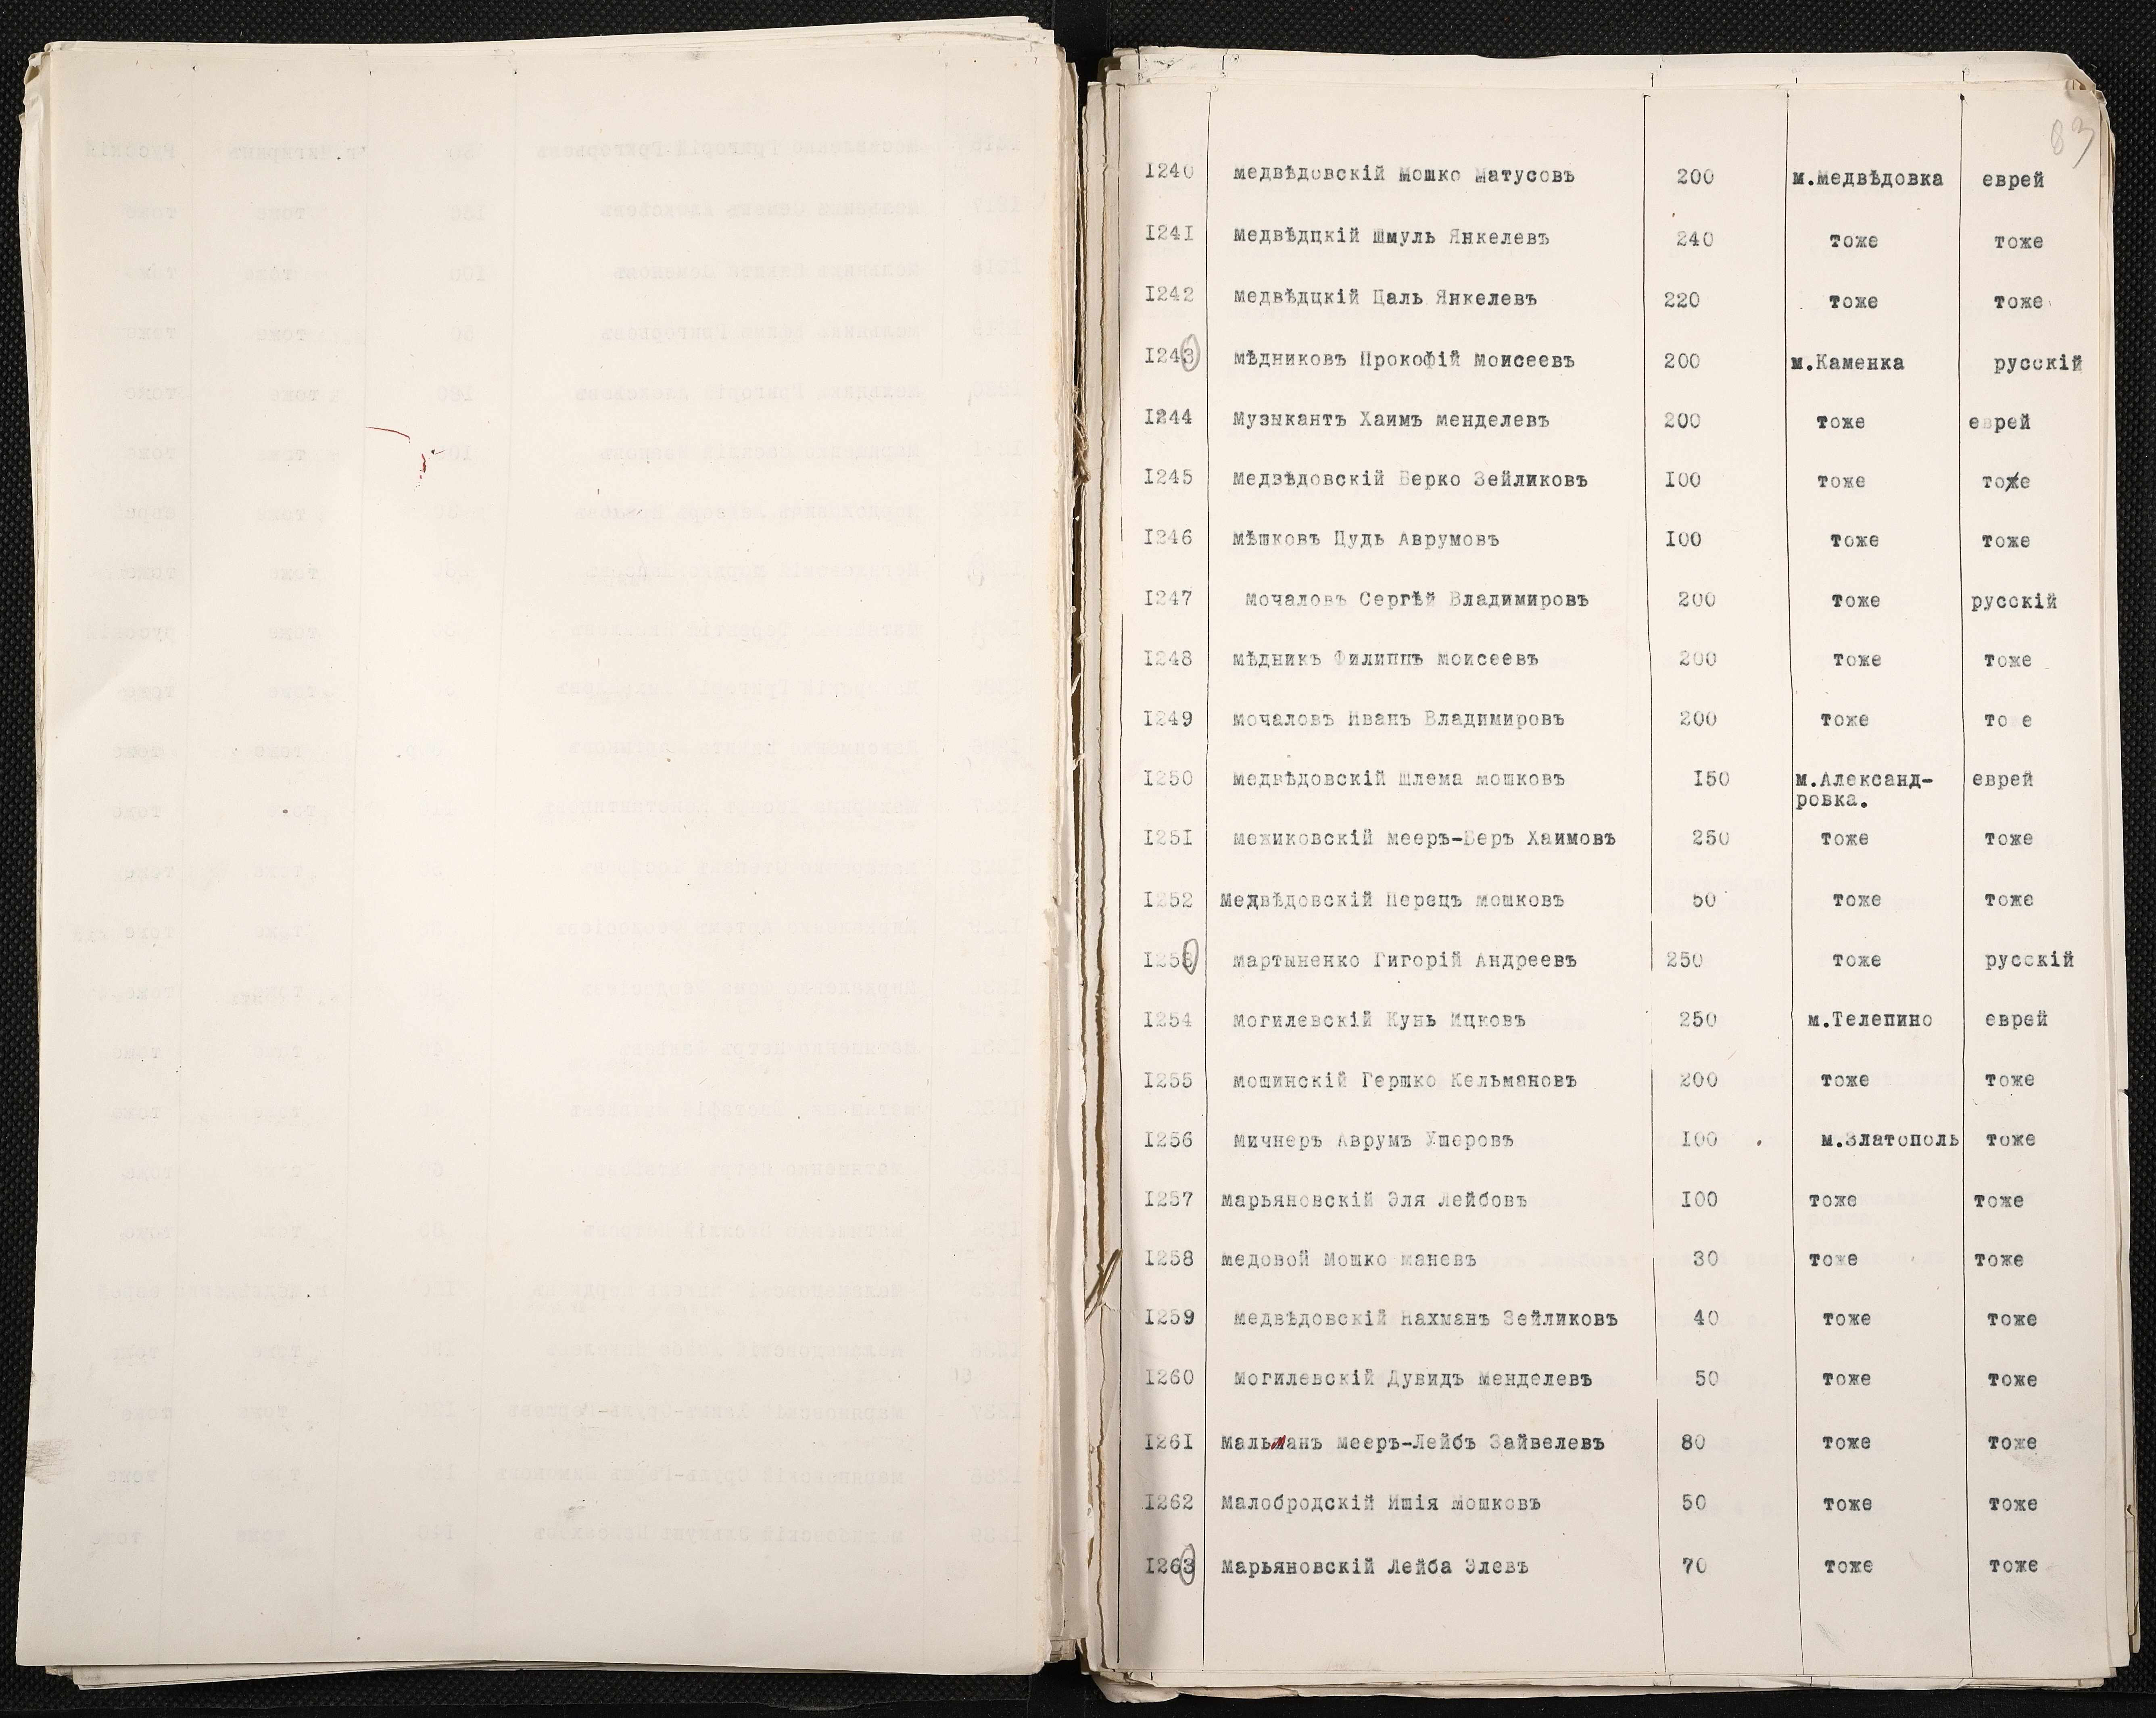 83
1240 Медвѣдовскій Мошко Матусовъ 200 м.Медвѣдовка еврей
1241 Медвѣдцкій Шмуль Янкелевъ 240 тоже тоже
1242 Медвѣдцкій Цаль Янкелевъ 220 тоже тоже
1243 Мѣдниковъ Прокофій Моисеевъ 200 м.Каменка русскій
1244 Музыкантъ Хаимъ Менделевъ 200 тоже еврей
1245 Медвѣдовскій Берко Зейликовъ 100 тоже тоже
1246 Мѣшковъ Цудь Аврумовъ 100 тоже тоже
1247 Мочаловъ Сергѣй Владимировъ 200 тоже русскій
1248 Мѣдникъ Филиппъ Моисеевъ 200 тоже тоже
1249 Мочаловъ Иванъ Владимировъ 200 тоже то е
1250 Медвѣдовскій Шлема Мошковъ 150 м.Александ- еврей
ровка.
1251 Межиковскій Мееръ-Беръ Хаимовъ 250 тоже тоже
1252 Медвѣдовскій Перецъ Мошковъ 50 тоже тоже
1253 Мартыненко Гигорій Андреевъ 250 тоже русскій
1254 Могилевскій Кунь Ицковъ 250 м.Телепино еврей
1255 Мошинскій Гершко Кельмановъ 200 тоже тоже
1256 Мичнеръ Аврумъ Ушеровъ 100 м.Златополь тоже
1257 Марьяновскій Эля Лейбовъ 100 тоже тоже
1258 Медовой Мошко Маневъ 30 тоже тоже
1259 Медвѣдовскій Нахманъ Зейликовъ 40 тоже тоже
1260 Могилевскій Дувидъ Менделевъ 50 тоже тоже
1261 Мальманъ Мееръ-Лейбъ Зайвелевъ 80 тоже тоже
1262 Малобродскій Ишія Мошковъ 50 тоже тоже
1263 Марьяновскій Лейба Элевъ 70 тоже тоже